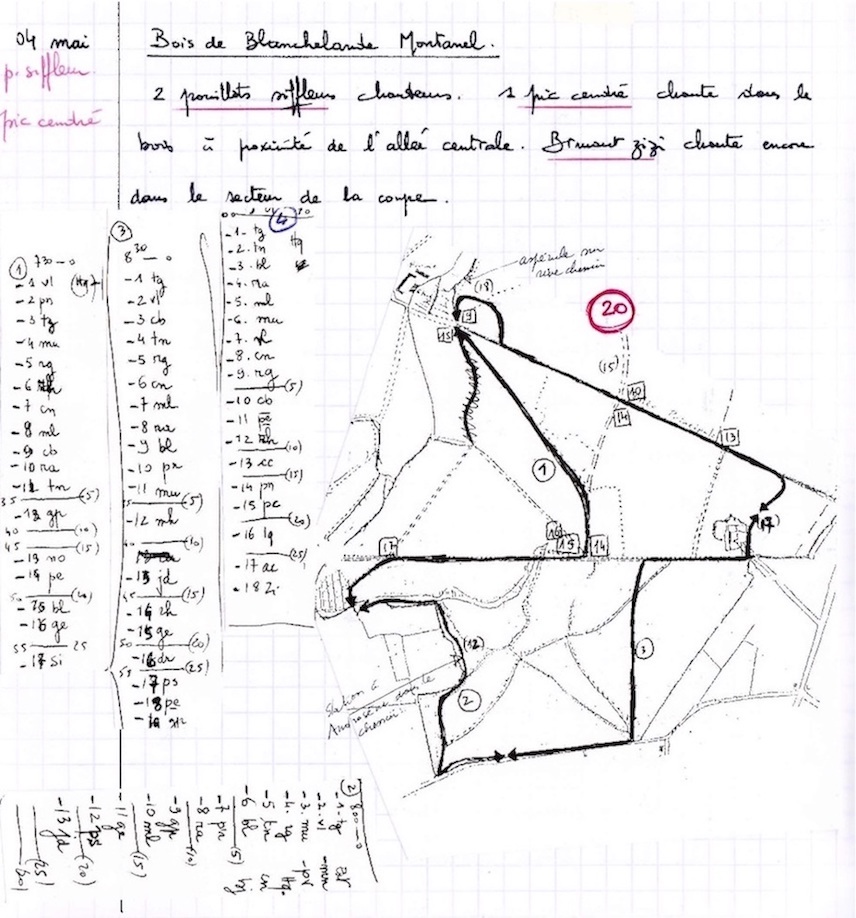 04 mai
Bois de Blanchelande Montanel.
p. siffleur
pic cendré
2 pouillots siffleurs chanteurs. 1 pic cendré chante dans le
bois à proximité de l'allée centrale. Bruant zizi chante encore
dans le secteur de la coupe.
1
7 30 - 0
-1 vl
-2 pn
-3 tg
-4 mu
-5 rg
-7 cn
-8 ml
-9 cb
-10 ra
-11 tn
35 (5)
-12 gp
40 (10)
45 (15)
-13 no
-14 pe
50 (20)
-15 bl
-16 ge
55 25
-17 si
3
8 30 - 0
-1 tg
-2 vl
-3 cb
-4 tn
-5 rg
-6 cn
-7 ml
-8 ra
-9 bl
-10 pn
-11 mu
(5)
-12 mh
40 (10)
-13 jd
45 (15)
-14 zh
-15 ge
50 (20)
-16 dr
55 (25)
-17 ps
-18 pe
4
-1- tg
Hq
-2. tn
-3. bl
-4. ra
-5. ml
-6. mu
-7. vl
-8. cn
-9. rg
(5)
-10 cb
-11 pe
-12 zh
(10)
-13 cc
(15)
-14 pn
-15 pc
(20)
-16 lq
(25)
-17 ac
-18 zi
aspérule sur
rive chemin
(18)
20
9
13
(15)
10
14
13
1
(17)
17
16
15
14
3
(12)
2
Station à
dans le
chemin
2
8 00 - 0
-1- tg
-2- vl
-3. mu
-4. rg
Hq.
-5 tn
cn
-6 bl
(5)
-7 pn
-8 ra
(10)
-9 gp
-10 ml
(15)
-11 ge
-12 ps
(20)
-13 jd
(25)